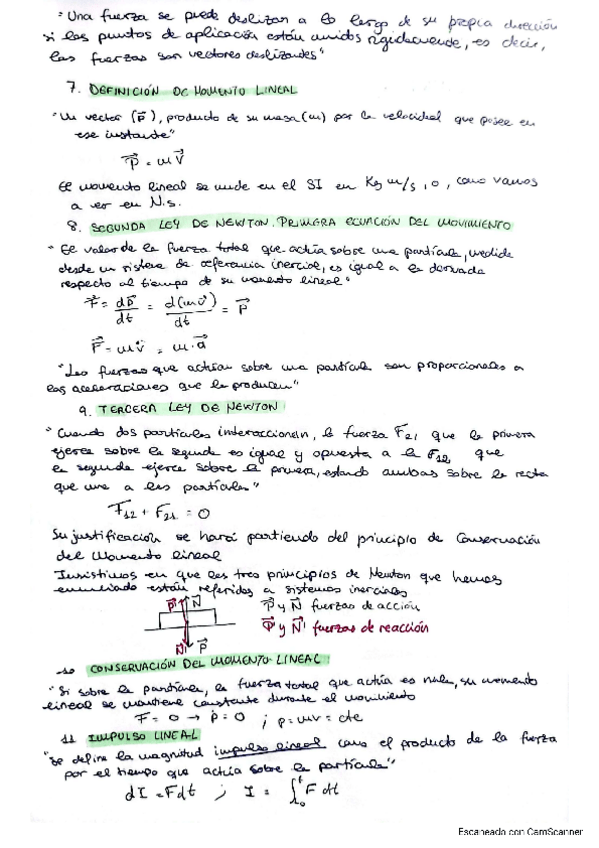 "Una fuerza se puede deslizar a lo largo de su propia dirección
si los puntos de aplicación están unidos rígidamente, es decir,
las fuerzas son vectores deslizantes"
7. DEFINICIÓN DE MOMENTO LINEAL
"Un vector (p⃗), producto de su masa (m) por la velocidad que posee en
ese instante"
p⃗ = m v⃗
El momento lineal se mide en el SI en Kg m/s, o, como vamos
a ver en N.s.
8. SEGUNDA LEY DE NEWTON. PRIMERA ECUACIÓN DEL MOVIMIENTO
"El valor de la fuerza total que actúa sobre una partícula, medida
desde un sistema de referencia inercial, es igual a la derivada
respecto al tiempo de su momento lineal"
F⃗ = dp⃗/dt = d(mv⃗)/dt = p⃗
F⃗ = mv̇ = m·a⃗
"Las fuerzas que actúan sobre una partícula son proporcionales a
las aceleraciones que la producen"
9. TERCERA LEY DE NEWTON
"Cuando dos partículas interaccionan, la fuerza F21 que la primera
ejerce sobre la segunda es igual y opuesta a la F12 que
la segunda ejerce sobre la primera, estando ambas sobre la recta
que une a las partículas"
F12 + F21 = 0
Su justificación se hará partiendo del principio de Conservación
del Momento lineal
Insistimos en que los tres principios de Newton que hemos
enunciado están referidos a sistemas inerciales
P' N P⃗ y N⃗ fuerzas de acción
N' P⃗ P⃗' y N⃗' fuerzas de reacción
10 CONSERVACIÓN DEL MOMENTO LINEAL
"Si sobre la partícula, la fuerza total que actúa es nula, su momento
lineal se mantiene constante durante el movimiento
F = 0 → ṗ = 0 ; p = mv = cte
11 IMPULSO LINEAL
"Se define la magnitud impulso lineal como el producto de la fuerza
por el tiempo que actúa sobre la partícula"
dI = F dt ; I = ∫ F dt
Escaneado con CamScanner